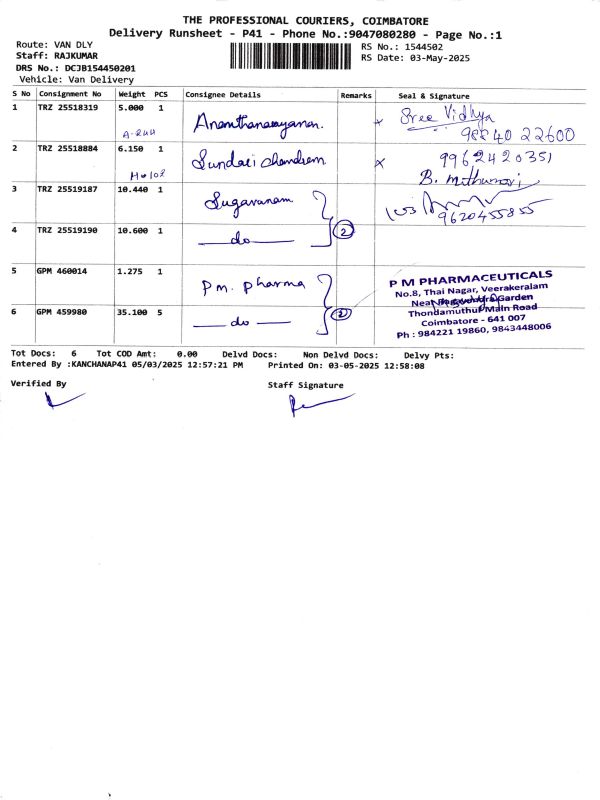 THE PROFESSIONAL COURIERS, COIMBATORE
Delivery Runsheet - P41 - Phone No.:9047080280 - Page No.:1
Route: VAN DLY
Staff: RAJKUMAR
DRS No.: DCJB154450201
Vehicle: Van Delivery
RS No.: 1544502
RS Date: 03-May-2025
S No Consignment No Weight PCS Consignee Details Remarks Seal & Signature
1 TRZ 25518319 5.000 1 Ananthanarayanan. x Sree Vidhya
A-244 98840 22600
2 TRZ 25518884 6.150 1 Sundari chandrem x 9962420351
H0102 B. Mithunasri
3 TRZ 25519187 10.440 1 Sugavanam
9620455855
4 TRZ 25519190 10.600 1 do 2
5 GPM 460014 1.275 1 Pm. pharma
6 GPM 459980 35.100 5 do 2
P M PHARMACEUTICALS
No.8, Thai Nagar, Veerakeralam
Near Garden
Thondamuthur Main Road
Coimbatore - 641 007
Ph : 984221 19860, 9843448006
Tot Docs: 6 Tot COD Amt: 0.00 Delvd Docs: Non Delvd Docs: Delvy Pts:
Entered By :KANCHANAP41 05/03/2025 12:57:21 PM Printed On: 03-05-2025 12:58:08
Verified By Staff Signature